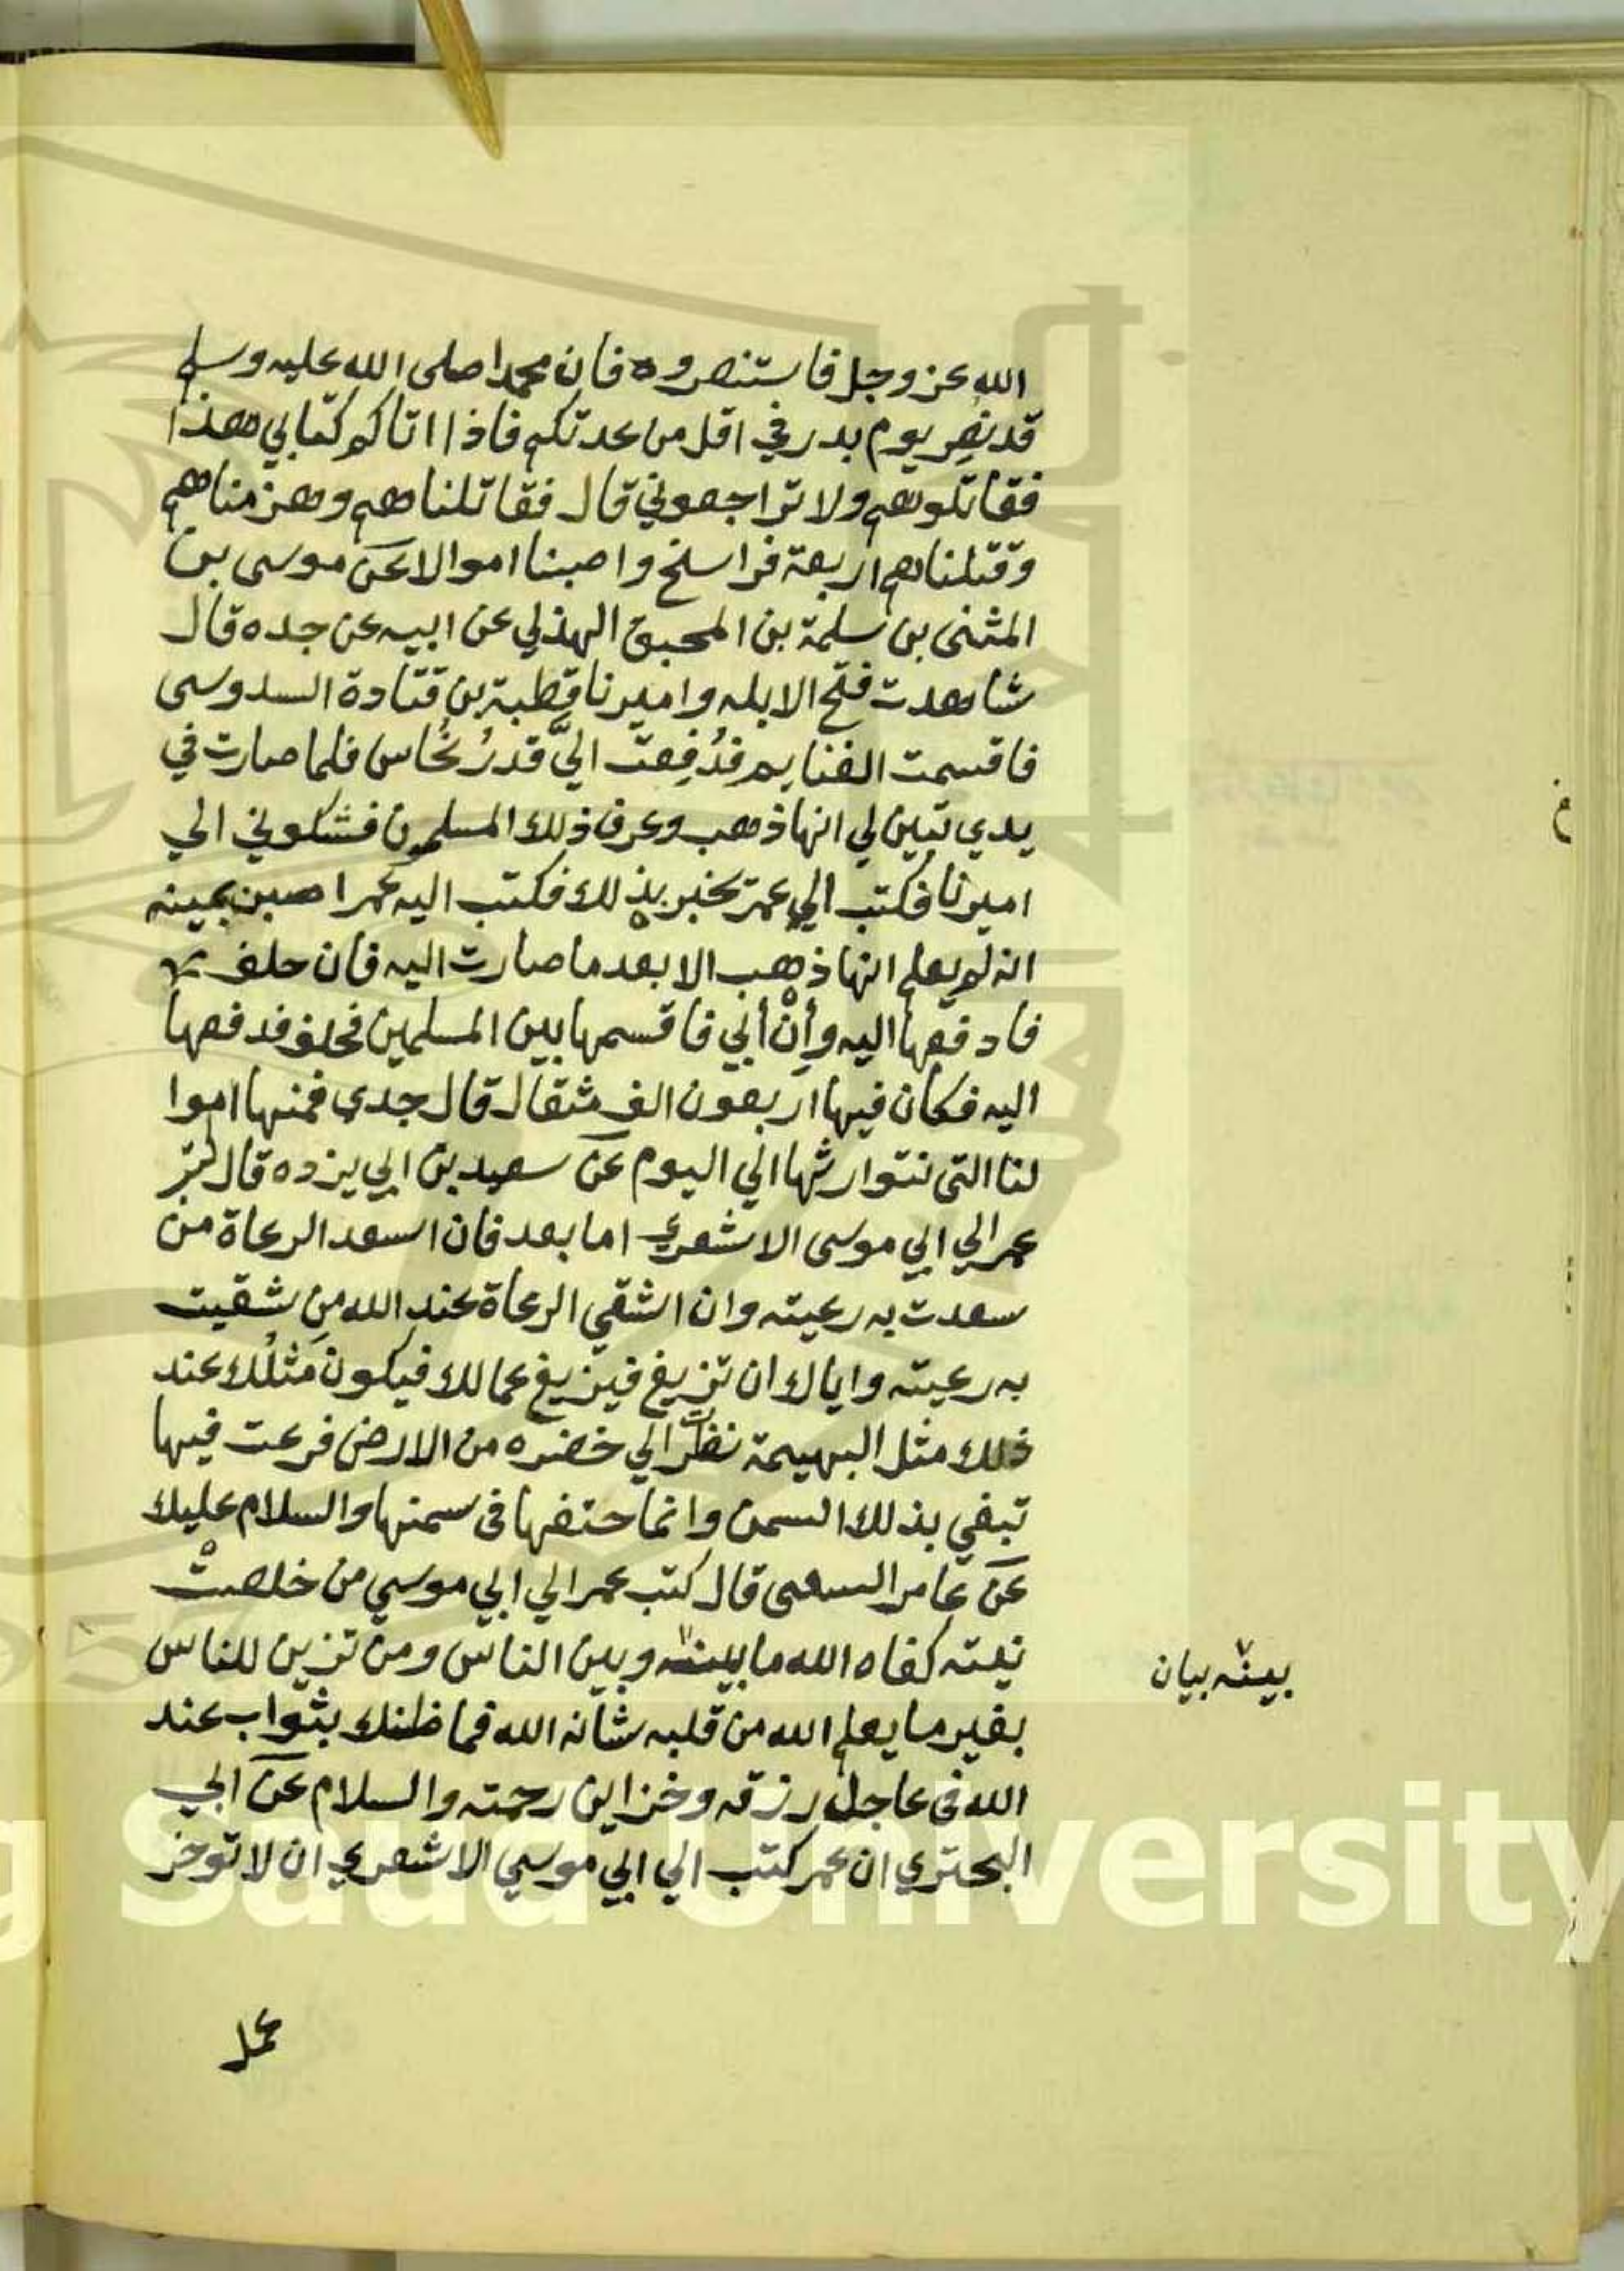 الله عز وجل فاستنصروه فان محمدا صلى الله عليه وسلم
قد نُصِر يوم بدر في اقل من عدتكم فاذا اتاكم كتابي هذا
فقاتلوهم ولا تراجعوني قال فقاتلناهم وهزمناهم
وقتلناهم اربعة فراسخ واصبنا اموالا عن موسى بن
المثنى بن سلمة بن المحبق الهذلي عن ابيه عن جده قال
شاهدت فتح الابله واميرنا قطبة بن قتادة السدوسى
فاقسمت الغنايم فدُفِعت اليَّ قدرُ نحُاس فلما صارت في
يدي تبين لي انها ذهب وعرف ذلك المسلمون فشكوني الي
اميرنا فكتب الي عمر يخبره بذلك فكتب اليه عمر اصبن يمينه
انه لم يعلم انها ذهب الا بعد ما صارت اليه فان حلف
فادفعها اليه وأنْ أبي فاقسمها بين المسلمين فحلف فدفعها
اليه فكان فيها اربعون الف مثقال قال جدي فمنها اموا
لنا التى نتوارثها الي اليوم عن سعيد بن ابي يزده قال كتب
عمر الي ابي موسى الاشعري اما بعد فان اسعد الرعاة من
سعدت به رعيته وان اشقي الرعاة عند الله من شقيت
به رعيته واياك ان تزيغ فيزيغ عمالك فيكون مَثلُك عند
ذلك مثل البهيمة نظرت الي خضره من الارض فرعت فيها
تبغي بذلك السمن وانما حتفها فى سمنها والسلام عليك
عن عامر السعى قال كتب عمر الي ابي موسي من خلصتْ
نيته كفاه الله ما بينه وبين الناس ومن تزين للناس
بينه بيان
بغير ما يعلم الله من قلبه شانه الله فما ظنك بثواب عند
الله فى عاجل رزقه وخزاين رحمته والسلام عن ابي
البحتري ان عمر كتب الي ابي موسي الاشعري ان لا توخر
عمل
King Saud University